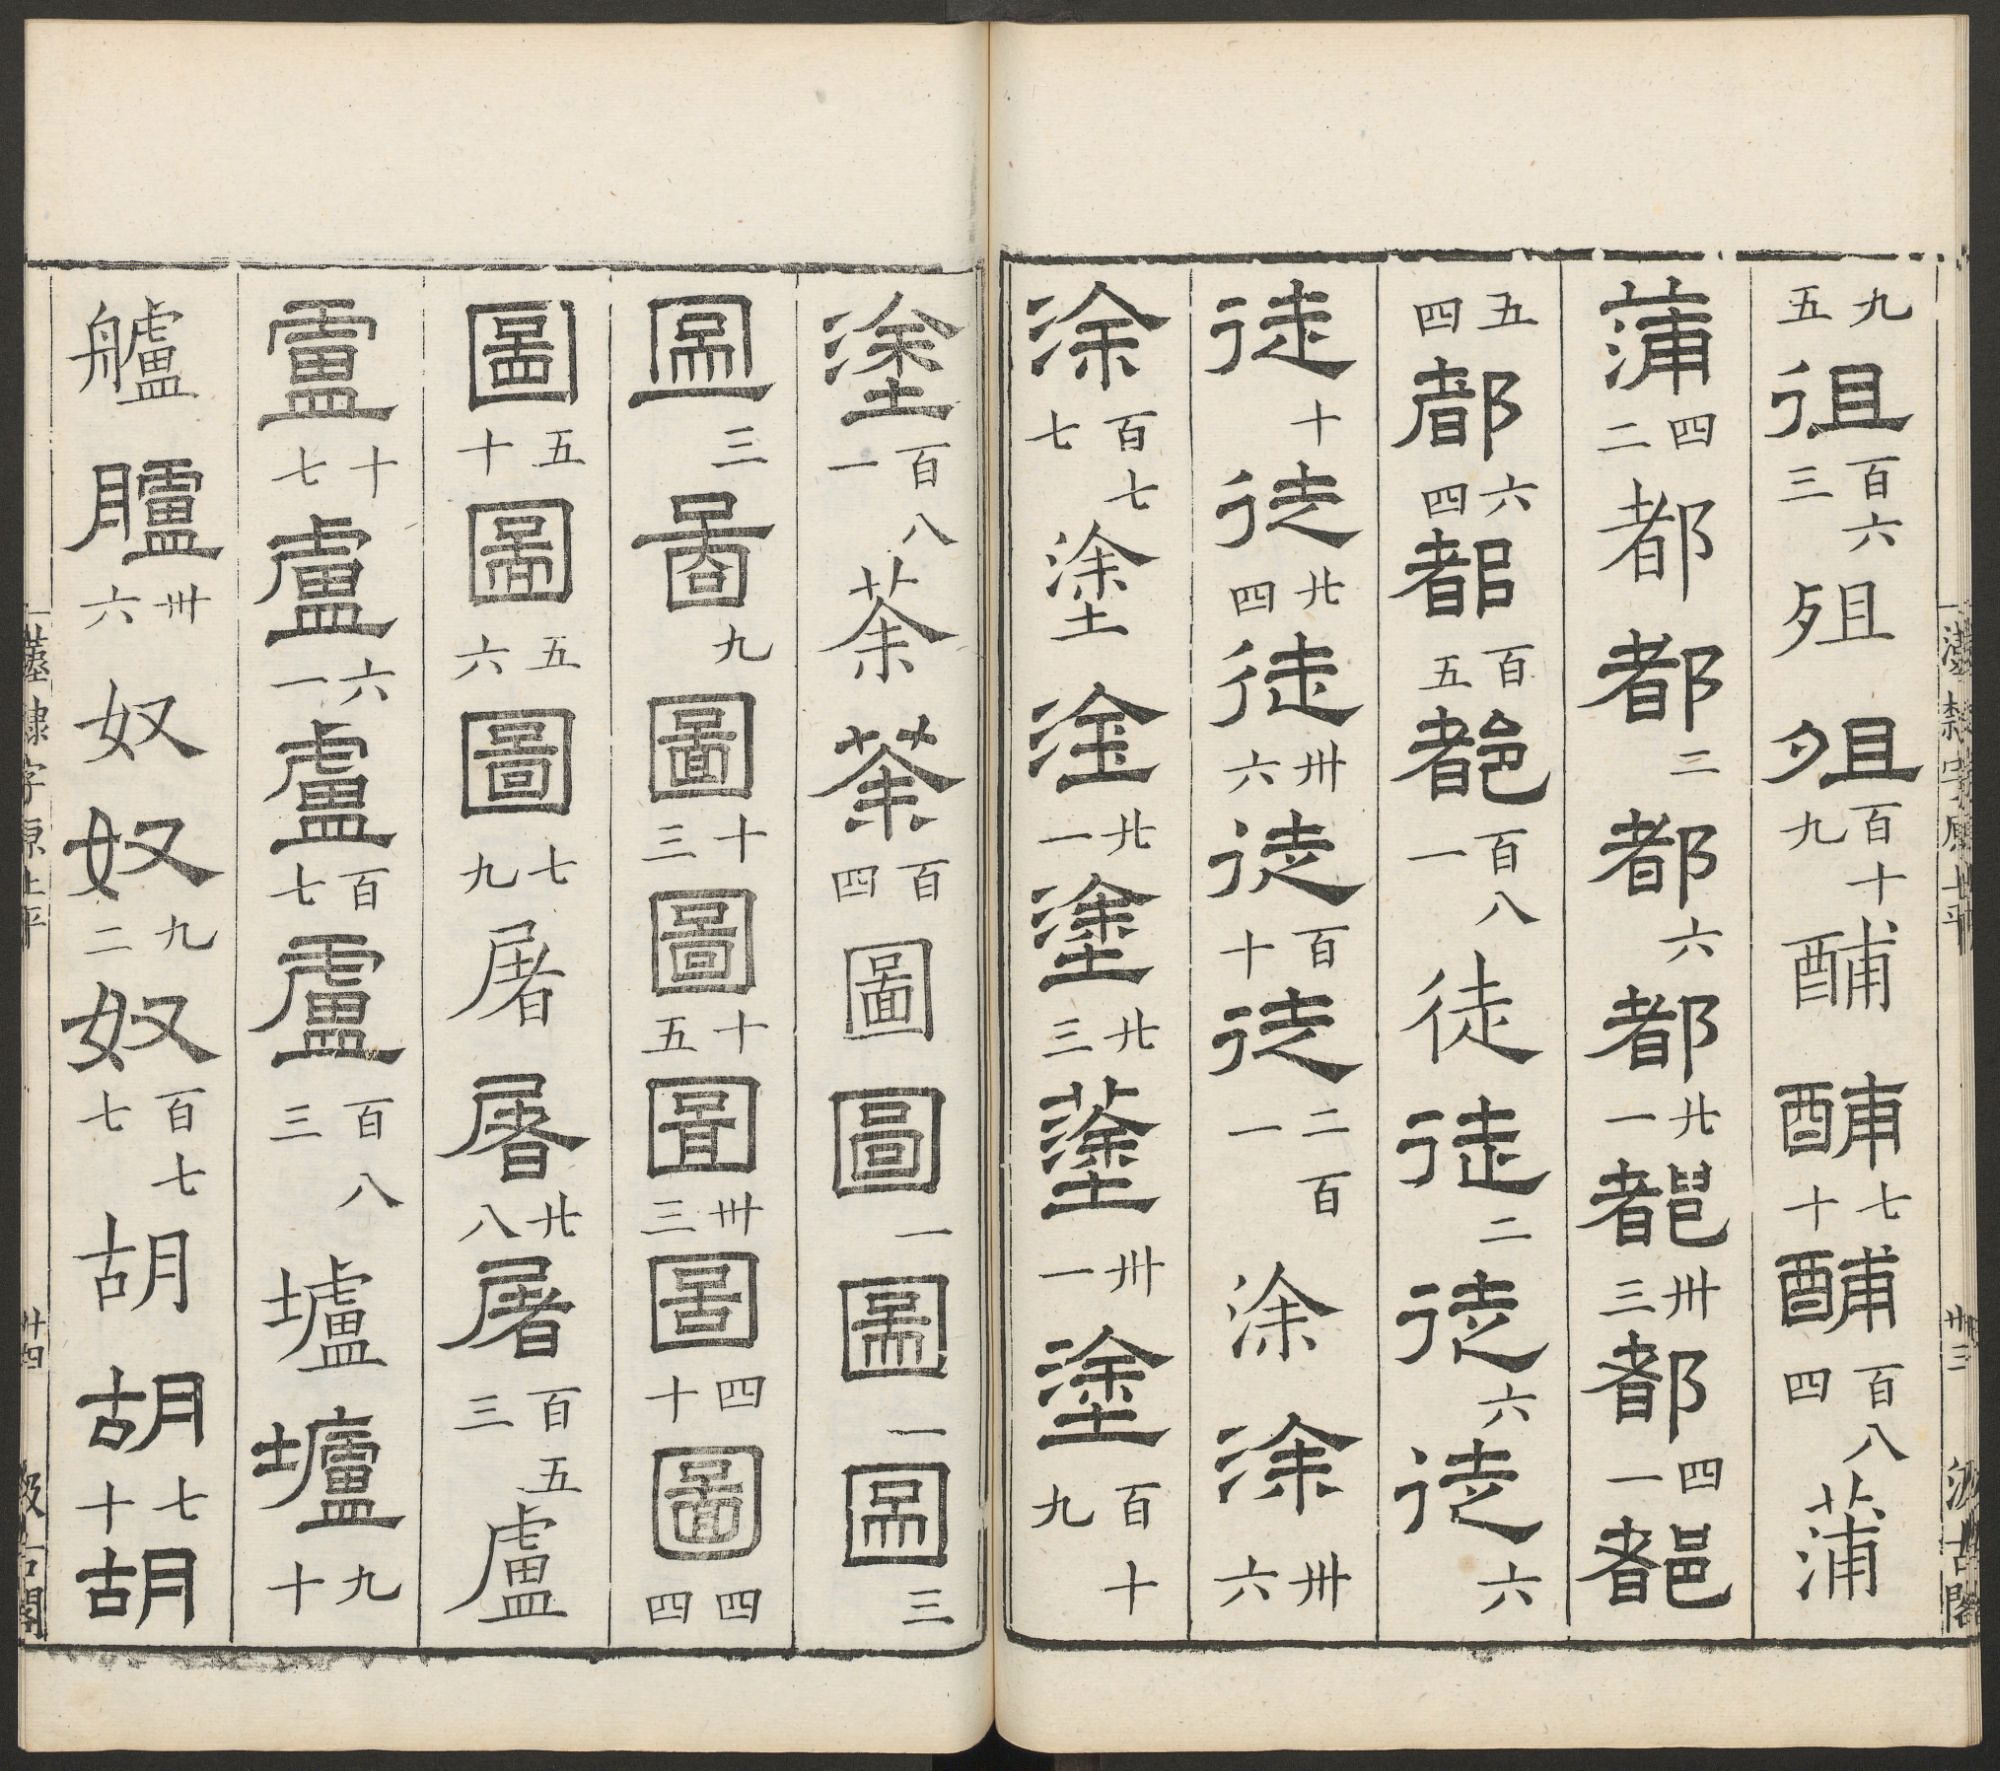 漢隸字原上平 卅三 汲古閣
九五徂百六三殂殂百十九酺酺七十酺百八四蒲
蒲四二都都二都六都廿一都卅三都四一都
五四都六四都百五都百八一徒徒二徒六徒六
徒十徒廿四徒卅六徒百十徒二百一涂涂卅六
涂百七七塗塗廿一塗廿三塗卅一塗百十九
塗百八一荼荼百四圖圖一圖二圖三
圖三圖九圖十三圖十五圖卅三圖四十圖四四
圖五十圖五六圖七九屠屠廿八屠百五三盧
盧十七盧六一盧百七盧百八三壚壚九十
艫臚卅六奴奴九二奴百七七胡胡七十胡
漢隸字原上平 卅四 汲古閣